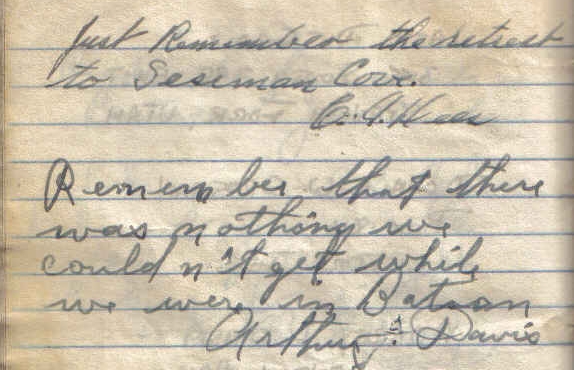 Just Remember the retreat
to Seseman Cove.
Remember that there
was nothing we
couldn't get while
we were in Bataan
Arthur Davis